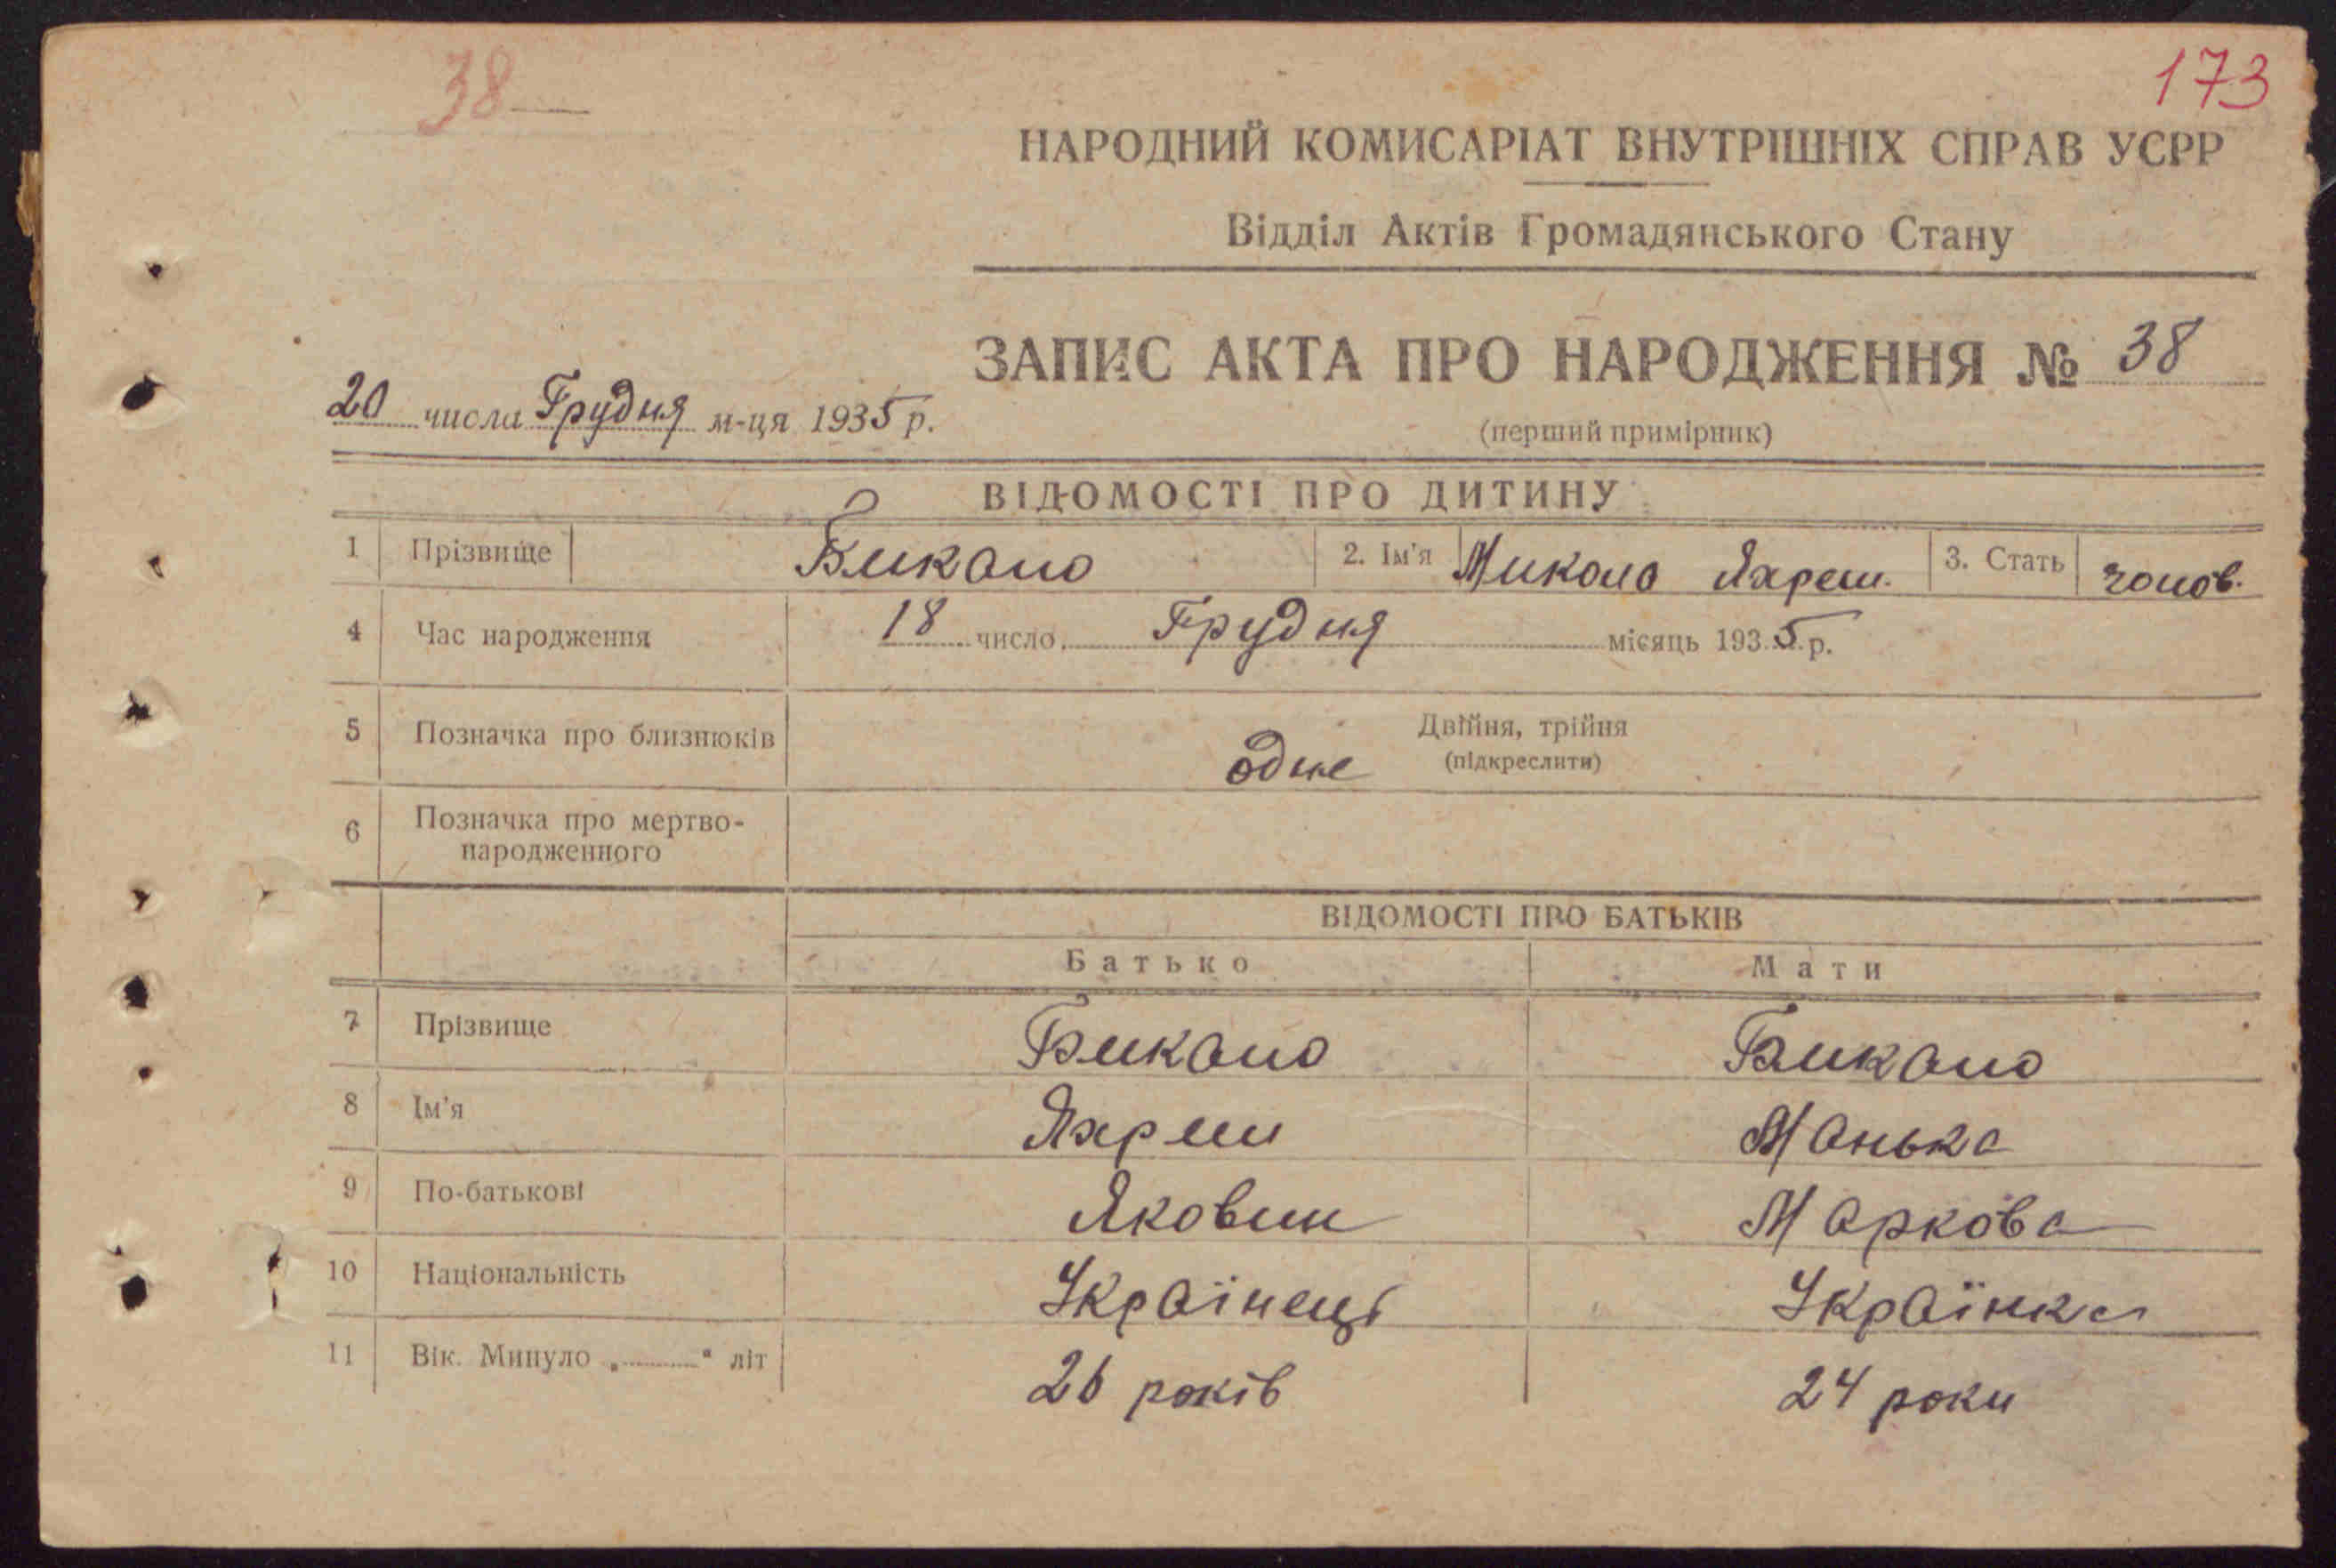 38
173
НАРОДНИЙ КОМИСАРІАТ ВНУТРІШНІХ СПРАВ УСРР
Відділ Актів Громадянського Стану
ЗАПИС АКТА ПРО НАРОДЖЕННЯ № 38
20 числа Грудня м-ця 1935 р.
(перший примірник)
ВІДОМОСТІ ПРО ДИТИНУ
1 Прізвище Бикало 2. Ім'я Микола Яхрем. 3. Стать чолов.
4 Час народження 18 число Грудня місяць 1935 р.
5 Позначка про близнюків одне Двійня, трійня
(підкреслити)
6 Позначка про мертво-
народженного
ВІДОМОСТІ ПРО БАТЬКІВ
Батько Мати
7 Прізвище Бикало Бикало
8 Ім'я Яхрем Манька
9 По-батькові Якович Маркова
10 Національність Українець Українка
11 Вік. Минуло „ “ літ 26 років 24 роки